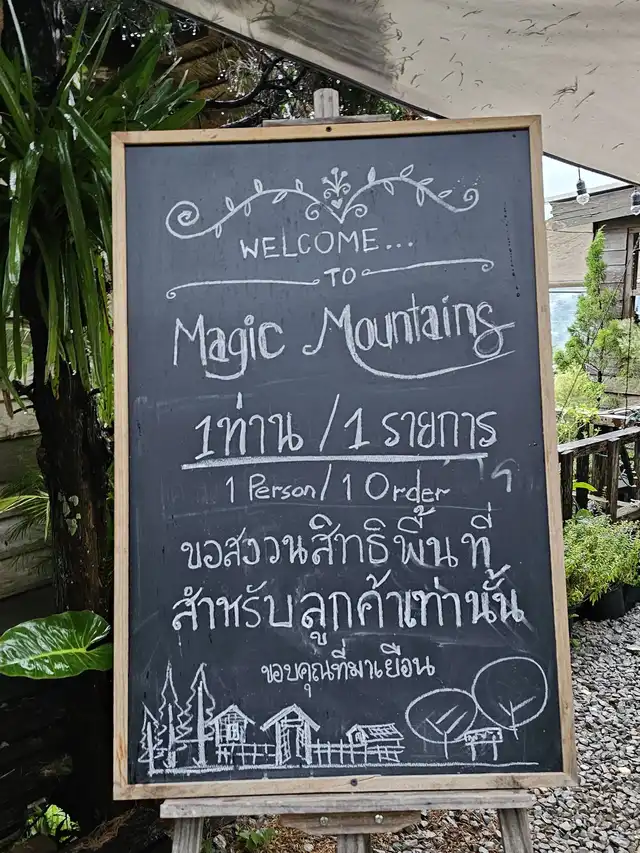 WELCOME...
TO
Magic Mountains
1ท่าน / 1 รายการ
1 Person / 1 Order
ขอสงวนสิทธิพื้นที่
สำหรับลูกค้าเท่านั้น
ขอบคุณที่มาเยือน